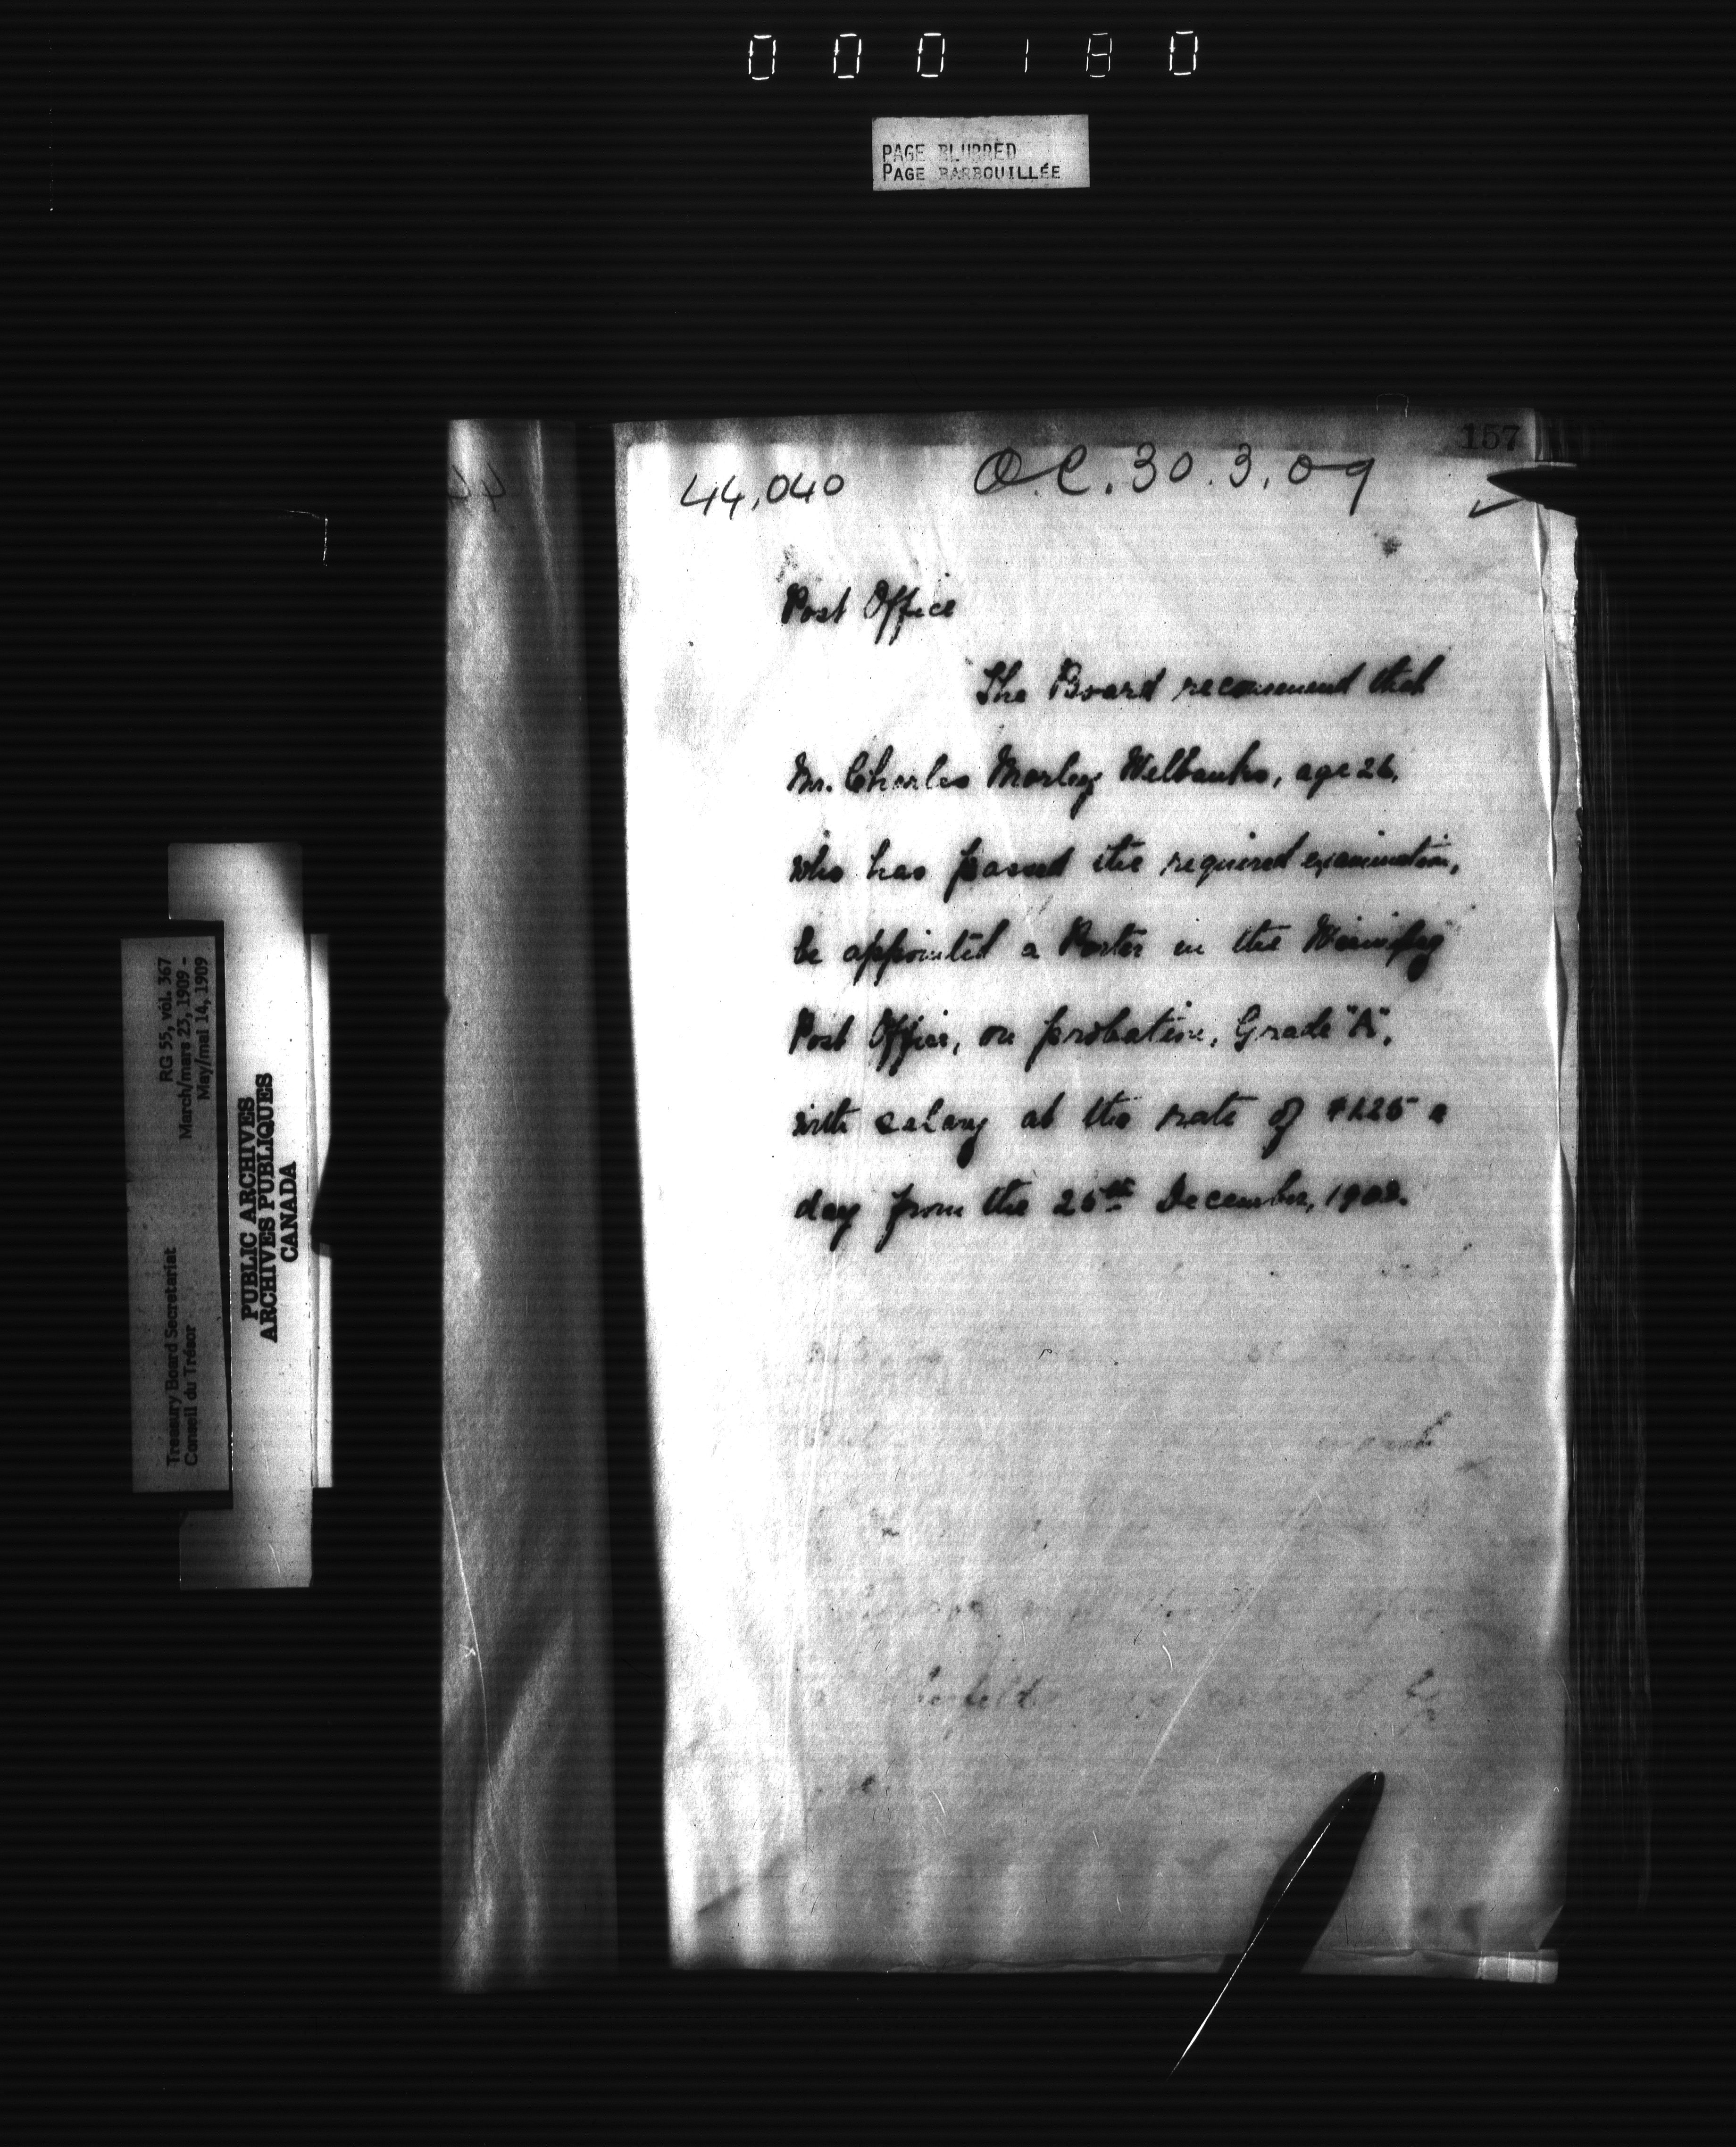 000180
PAGE BLURRED
PAGE BARBOUILLÉE
157
44,040
O.C. 30.3.09
Post Office
The Board recommend that
Mr. Charles Morley Welbanks, age 26,
who has passed the required examination,
be appointed a Porter in the Winnipeg
Post Office, on probation, Grade "A",
with salary at the rate of $1.25 a
day from the 26th December, 1908.
RG 55, vol. 367
March/mars 23, 1909 -
May/mai 14, 1909
Treasury Board Secretariat
Conseil du Trésor
PUBLIC ARCHIVES
ARCHIVES PUBLIQUES
CANADA